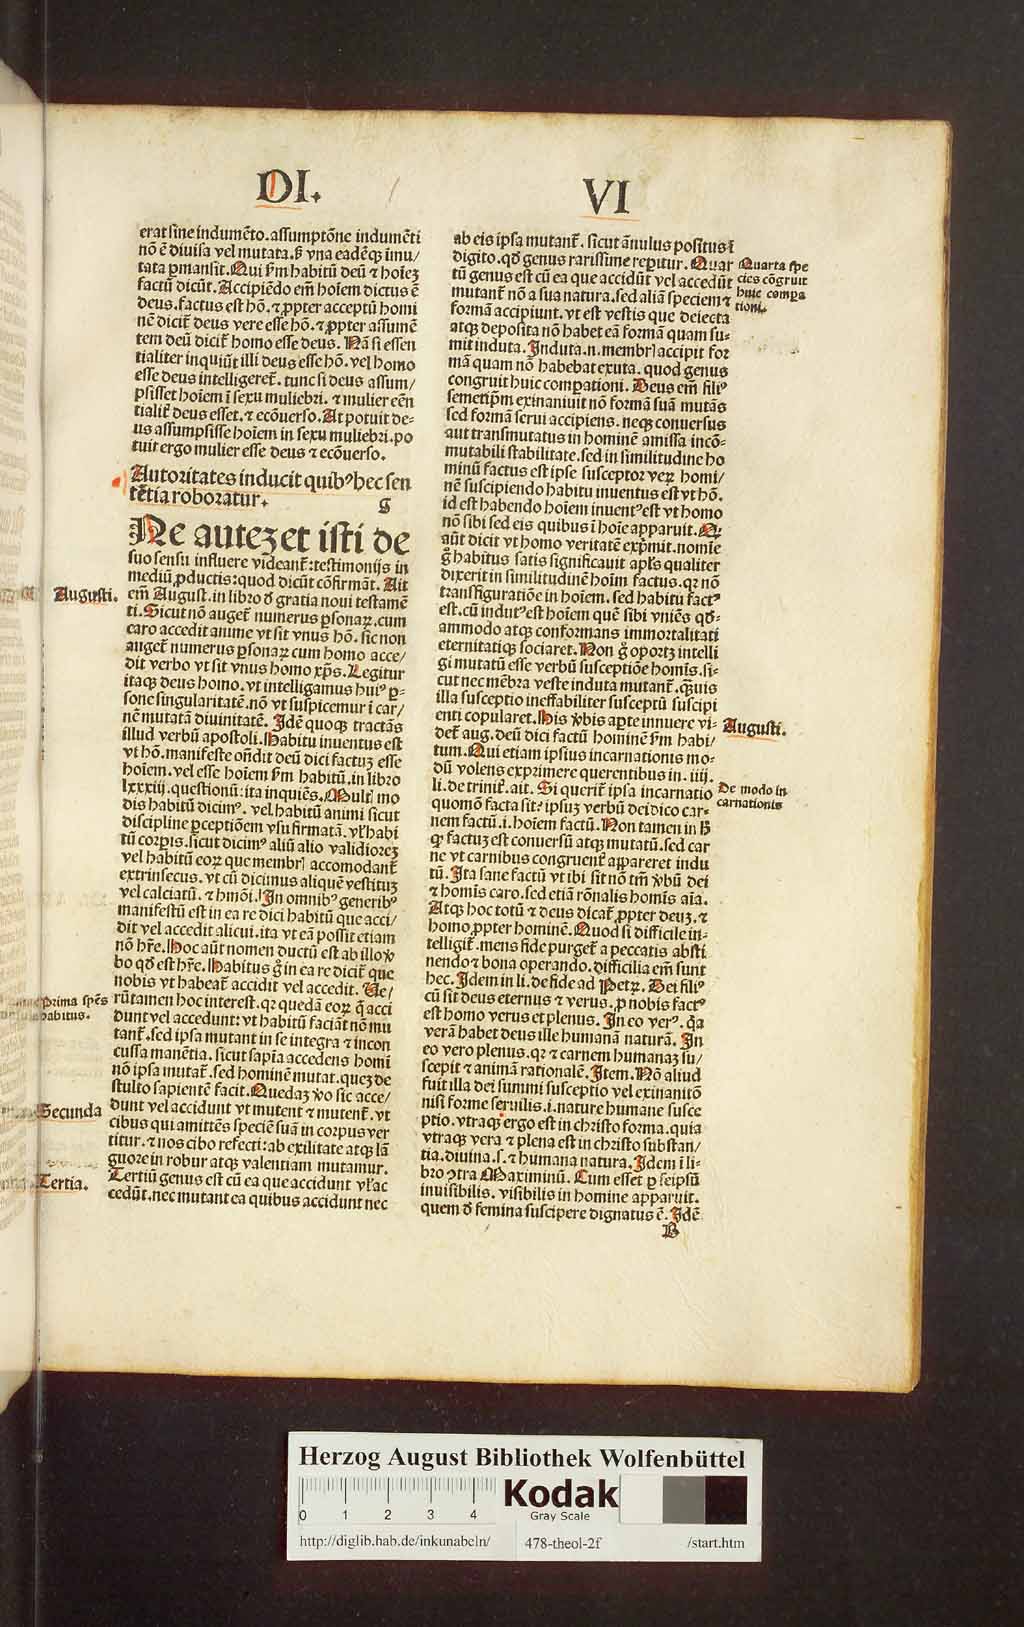 DI.
VI
erat sine indumēto. assumptōne indumēti
nō ē diuisa vel mutata. sꝫ vna eadēqꝫ imu/
tata ꝑmansit. Qui ẜm habitū deū ⁊ hoieꝫ
factū dicūt. Accipiēdo em̄ hoiem dictus ē
deus. factus est hō. ⁊ ꝓpter acceptū homi
nē dicit᷑ deus vere esse hō. ⁊ ꝓpter assumē
tem deū dicit᷑ homo esse deus. Nā si essen
tialiter inquiūt illi deus esse hō. vel homo
esse deus intelligeret᷑. tunc si deus assum/
psisset hoiem ī sexu muliebri. ⁊ mulier eēn
tialit᷑ deus esset. ⁊ ecōuerso. At potuit de-
us assumpsisse hoiem in sexu muliebri. po
tuit ergo mulier esse deus ⁊ ecōuerso.
Autoritates inducit quibꝰ hec sen
tētia roboratur.
G
Ne auteꝫ et isti de
suo sensu influere videant᷑: testimonijs in
mediū ꝓductis: quod dicūt cōfirmāt. Ait
em̄ August. in libro ď gratia noui testamē
ti. Sicut nō auget᷑ numerus ꝑsonaꝝ. cum
caro accedit anime vt sit vnus hō. sic non
auget᷑ numerus ꝑsonaꝝ cum homo acce/
dit verbo vt sit vnus homo xp̄s. Legitur
itaqꝫ deus homo. vt intelligamus huiꝰ ꝑ-
sone singularitatē. nō vt suspicemur ī car/
nē mutatā diuinitatē. Idē quoqꝫ tractās
illud verbū apostoli. Habitu inuentus est
vt hō. manifeste oñdit deū dici factuꝫ esse
hoiem. vel esse hoiem ẜm habitū. in libro
lxxxiij. questionū: ita inquiēs. Multꝭ mo
dis habitū dicimꝰ. vel habitū animi sicut
discipline ꝑceptiōem vsu firmatā. vl̓ habi
tū corpis. sicut dicimꝰ aliū alio validioreꝫ
vel habitū eoꝝ que membrꝭ accomodant᷑
extrinsecus. vt cū dicimus aliquē vestituꝫ
vel calciatū. ⁊ hmōi. In omnibꝰ generibꝰ
manifestū est in ea re dici habitū que acci/
dit vel accedit alicui. ita vt eā possit etiam
nō hr̄e. Hoc aūt nomen ductū est ab illo ꝟ
bo qđ est hr̄e. Habitus g̊ in ea re dicit᷑ que
nobis vt habeat᷑ accidit vel accedit. Ve/
rūtamen hoc interest. qꝛ quedā eoꝝ q̄ acci
dunt vel accedunt: vt habitū faciāt nō mu
tant᷑. sed ipsa mutant in se integra ⁊ incon
cussa manētia. sicut sapīa accedens homī
nō ipsa mutat᷑. sed hominē mutat. queꝫ de
stulto sapientē facit. Quedaꝫ ꝟo sic acce/
dunt vel accidunt vt mutent ⁊ mutent᷑. vt
cibus qui amittēs speciē suā in corpus ver
titur. ⁊ nos cibo refecti: ab exilitate atqꝫ lā
guore in robur atqꝫ valentiam mutamur.
Tertiū genus est cū ea que accidunt vl̓ ac
cedūt. nec mutant ea quibus accidunt nec
Augusti.
Prima spēs
habitus.
Secunda
Tertia.
ab eis ipsa mutant᷑. sicut ānulus positus ī
digito. qđ genus rarissime reperitur. Quar
tū genus est cū ea que accidūt vel accedūt
mutant᷑ nō a sua natura. sed aliā speciem ⁊
formā accipiunt. vt est vestis que deiecta
atqꝫ deposita nō habet eā formā quam su-
mit induta. Induta .n. membrꝭ accipit for
mā quam nō habebat exuta. quod genus
congruit huic compationi. Deus em̄ filiꝰ
semetip̄m exinaniuit nō formā suā mutās
sed formā serui accipiens. neqꝫ conuersus
aut transmutatus in hominē amissa incō-
mutabili stabilitate. sed in similitudine ho
minū factus est ipse susceptor veꝝ homi/
nē suscipiendo habitu inuentus est vt hō.
id est habendo hoiem inuentꝰ est vt homo
nō sibi sed eis quibus ī hoie apparuit. Qꝛ
aūt dicit vt homo veritatē exp̄mit. nomīe
g̊ habitus satis significauit apl̓s qualiter
dixerit in similitudinē hoim̄ factus. qꝛ nō
transfiguratiōe in hoiem. sed habitu factꝰ
est. cū indutꝰ est hoiem quē sibi vniēs qđ-
ammodo atqꝫ conformans immortalitati
eternitatiqꝫ sociaret. Non g̊ oportꝫ intelli
gi mutatū esse verbū susceptiōe homis. si-
cut nec mēbra veste induta mutant᷑. q̄uis
illa susceptio ineffabiliter susceptū suscipi
enti copularet. His ꝟbis aperte innuere vi-
det᷑ aug. deū dici factū hominē ẜm habi/
tum. Qui etiam ipsius incarnationis mo-
dū volens exprimere querentibus in .iiij.
li. de trinit᷑. ait. Si querit᷑ ipsa incarnatio
quomō facta sit: ipsuꝫ verbū dei dico car-
nem factū. i. hoiem factū. Non tamen in h̄
qď factuꝫ est conuersū atqꝫ mutatū. sed car
ne vt carnibus congruent᷑ appareret indu
tū. Ita sane factū vt ibi sit nō tm̄ ꝟbū dei
⁊ homis caro. sed etiā rōnalis homis aīa.
Atqꝫ hoc totū ⁊ deus dicat᷑ ꝓpter deuꝫ. ⁊
homo ꝓpter hominē. Quod si difficile in-
telligit᷑. mens fide purget᷑ a peccatis absti
nendo ⁊ bona operando. difficilia em̄ sunt
hec. Idem in li. de fide ad Petꝝ. Dei filiꝰ
cū sit deus eternus ⁊ verus. ꝓ nobis factꝰ
est homo verus et plenus. In eo verꝰ. q̄a
verā habet deus ille humanā naturā. In
eo vero plenus. qꝛ ⁊ carnem humanaꝫ su/
scepit ⁊ animā rationalē. Item. Nō aliud
fuit illa dei summi susceptio vel exinanitō
nisi forme seruilis. i. nature humane susce
ptio. vtraqꝫ ergo est in christo forma. quia
vtraqꝫ vera ⁊ plena est in christo substan/
tia. diuina .s. ⁊ humana natura. Idem ī li-
bro ꝯtra Maximinū. Cum esset ꝑ seipsū
inuisibilis. visibilis in homine apparuit.
quem ď femina suscipere dignatus ē. Idē
B
Quarta spe
cies cōgruit
huic compa
tioni.
Augusti.
De modo in
carnationis
Herzog August Bibliothek Wolfenbüttel
0 1 2 3 4
Kodak
Gray Scale
http://diglib.hab.de/inkunabeln/ 478-theol-2f /start.htm